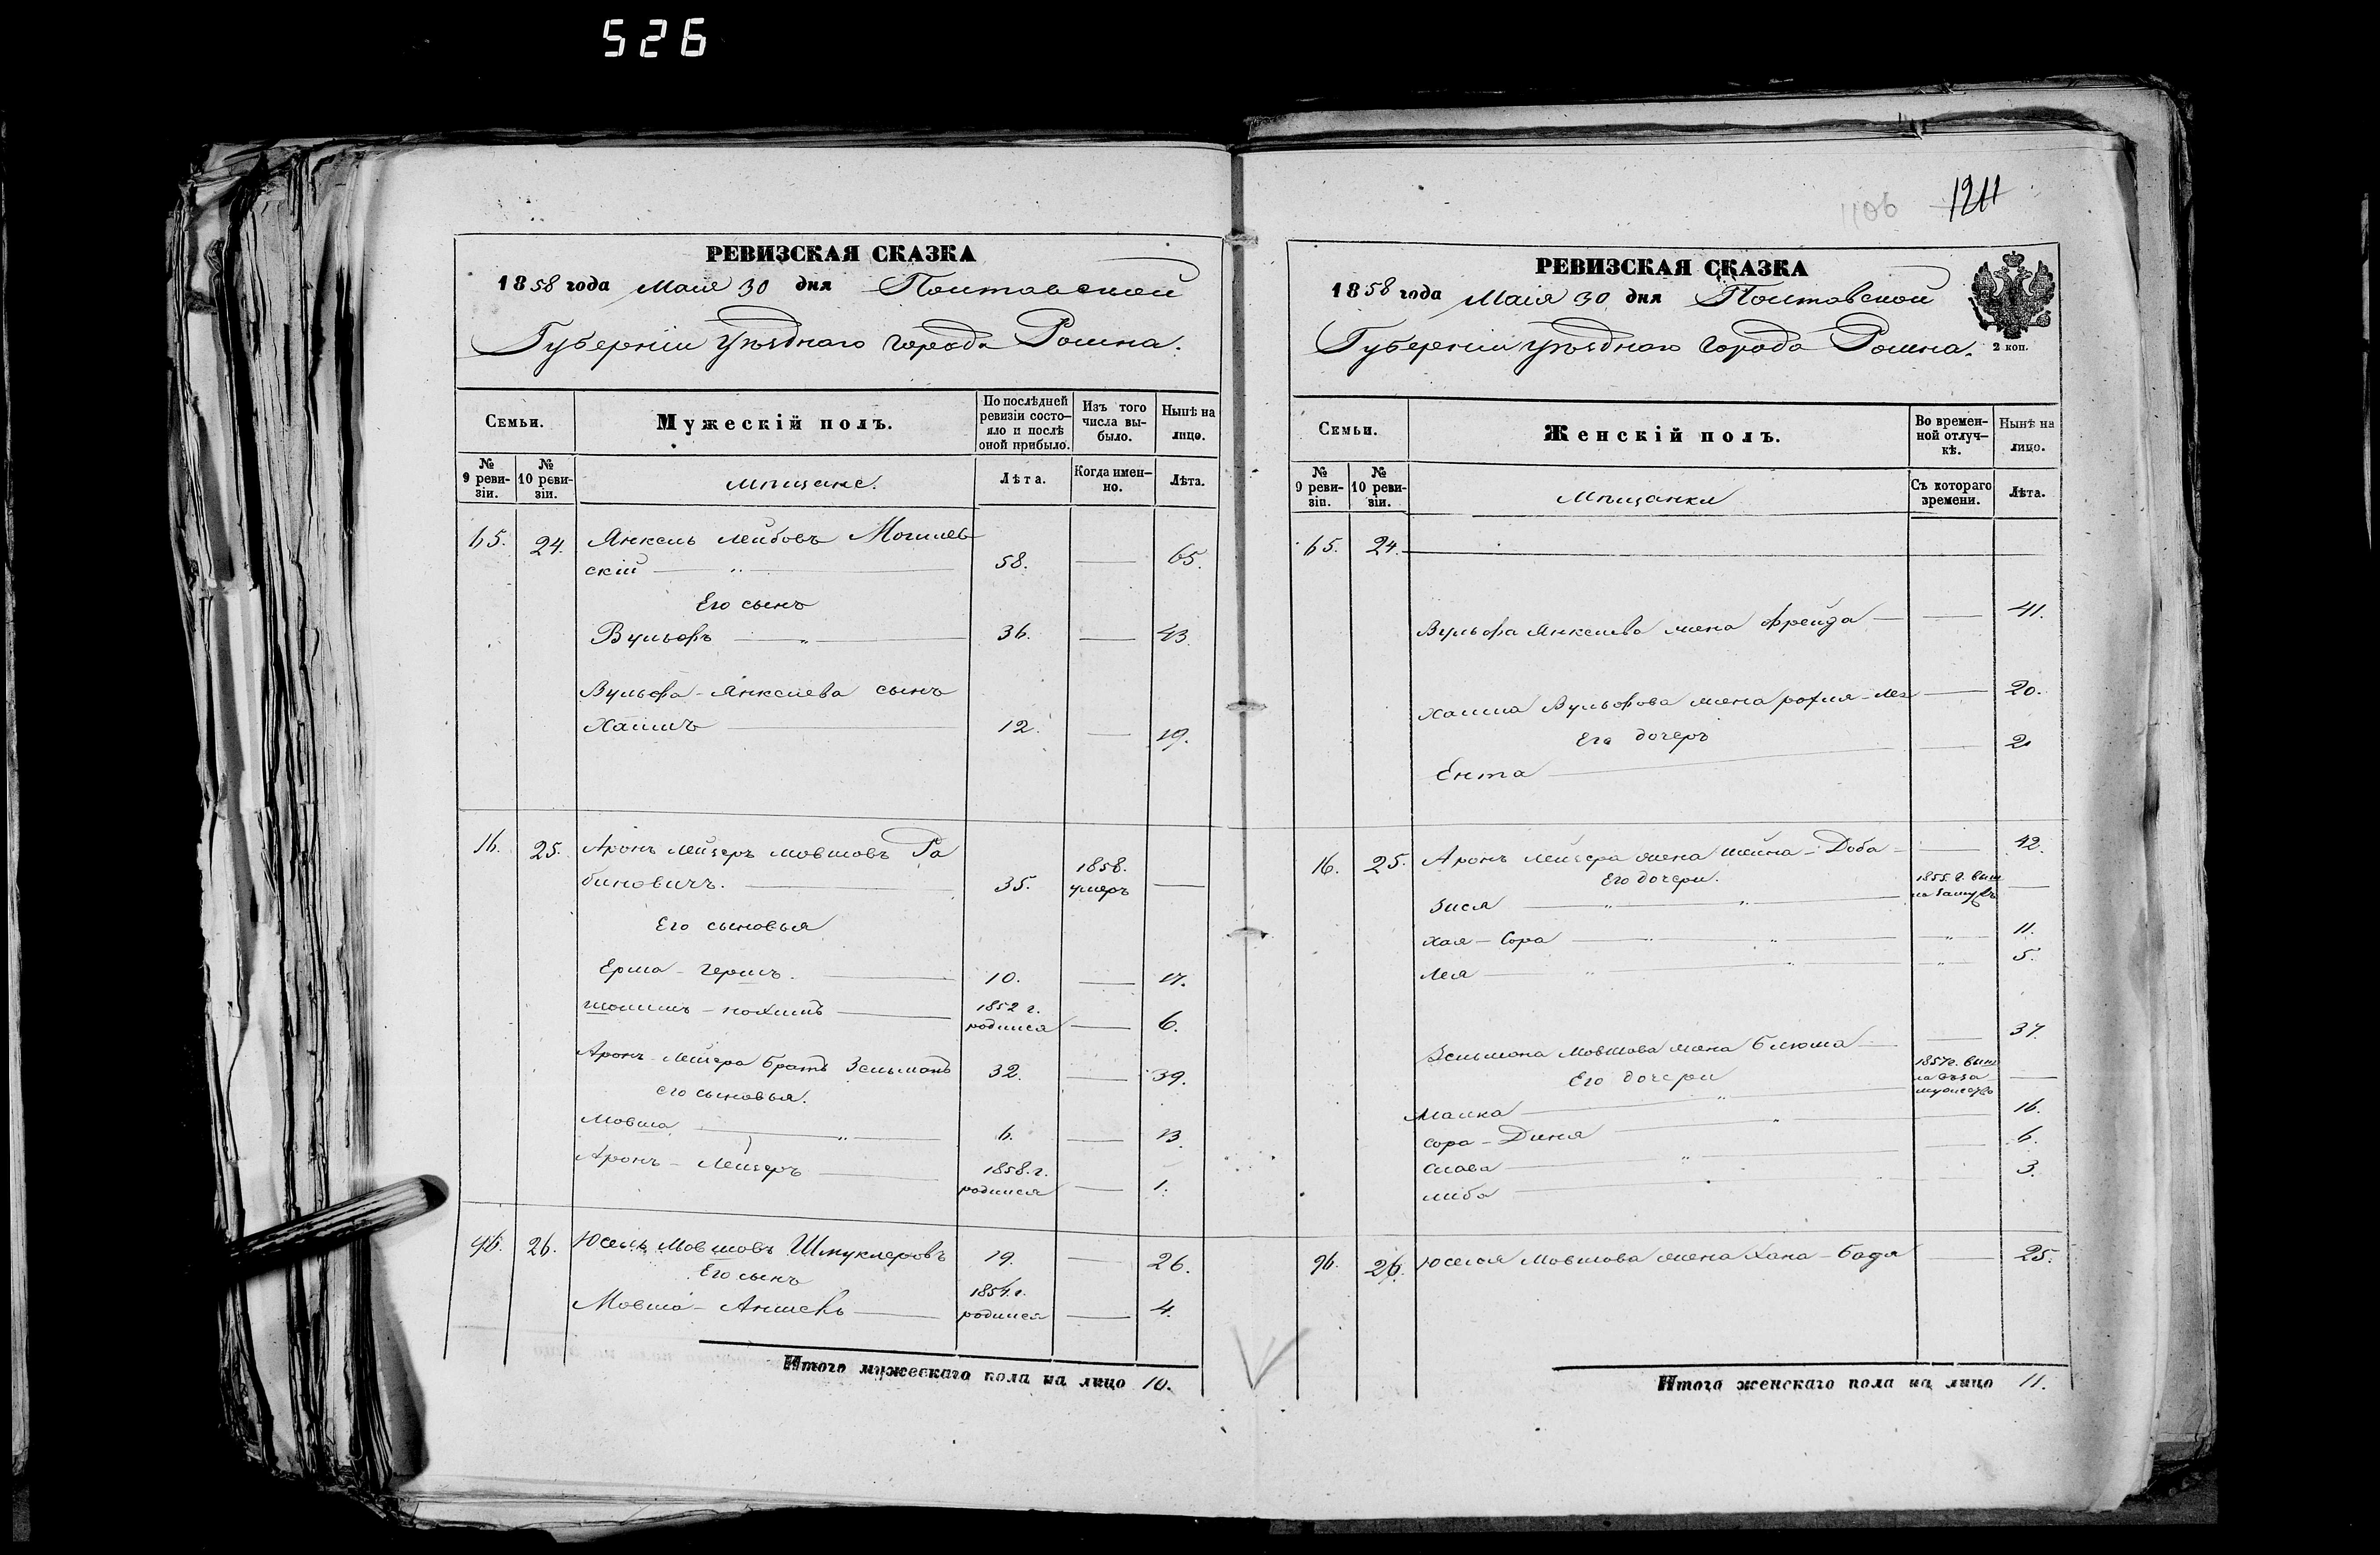 526
РЕВИЗСКАЯ СКАЗКА
1858 года Маія 30 дня Полтавской
Губерніи уѣзднаго города Ромна.
Семьи.
Мужескій полъ.
По послѣдней ревизіи состо-
яло и послѣ оной прибыло.
Изъ того числа вы-
было.
Нынѣ на лицо.
№ 9 реви-
зіи.
№ 10 реви-
зіи.
Мѣщане.
Лѣта.
Когда имен-
но.
Лѣта.
65. 24. Янкель Лейбовъ Могилев
скій 58. 65.
Его сынъ
Вульфъ 36. 43
Вульфа-Янкелева сынъ
Хаимъ 12. 19.
16. 25. Аронъ Лейзеръ Мовшовъ Ра
биновичъ. 35. 1858. умеръ
Его сыновья
Ерша-Гершъ. 10. 17.
Шолимъ-Нохимъ 1852 г. родился 6.
Аронъ Лейзера братъ Зельманъ 32. 39.
его сыновья.
Мовша 6. 13.
Аронъ-Лейзеръ 1858.г. родился 1.
96. 26. Юсель Мовшовъ Шмуклеровъ 19. 26.
Его сынъ
Мовша-Аншель 1854.г. родился 4.
Итого мужескаго пола на лицо 10.
1106 1211
РЕВИЗСКАЯ СКАЗКА
1858 года Маія 30 дня Полтавской
Губерніи уѣзднаго города Ромна.
2 коп.
Семьи.
Женскій полъ.
Во времен-
ной отлуч-
кѣ.
Нынѣ на лицо.
№ 9 реви-
зіи.
№ 10 реви-
зіи.
Мѣщанки
Съ котораго времени.
Лѣта.
65. 24.
Вульфа Янкелева жена Фрейда 41.
Хаима Вульфова жена Рохля-Леа 20.
Его дочерь 2
Ента
16. 25. Аронъ Лейзера жена Шейна-Доба 42.
Его дочери.
Зися 1855.г. выш на замужъ
Хая-Сора 11.
Лея 5.
Зельмана Мовшова жена Блюма 37.
Его дочери
Малка 1857г. выш
Сора-Диня 16.
Слава 6.
Либа 3.
96. 26. Юселя Мовшова жена Хана-Бадя 25.
Итого женскаго пола на лицо 11.